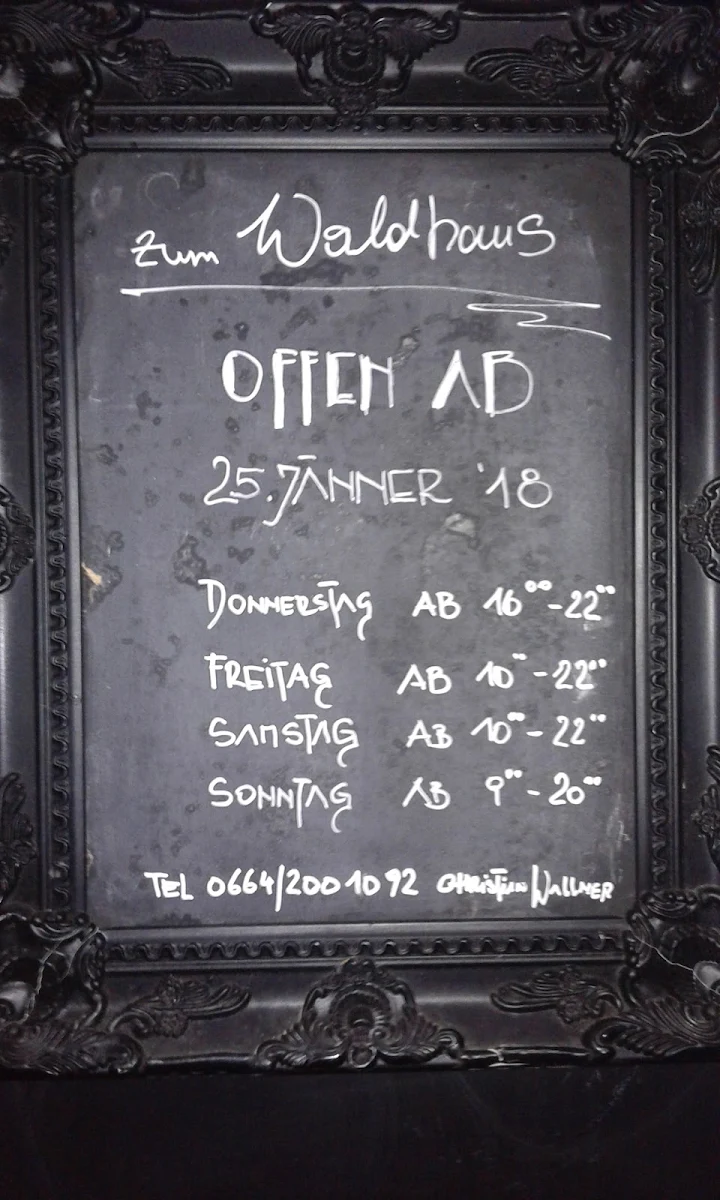 Zum Waldhaus
OFFEN AB
25. JÄNNER '18
DONNERSTAG AB 16°°-22°°
FREITAG AB 10°°-22°°
SAMSTAG AB 10°°-22°°
SONNTAG AB 9°°-20°°
TEL 0664/200 10 92 CHRISTIAN WALLNER